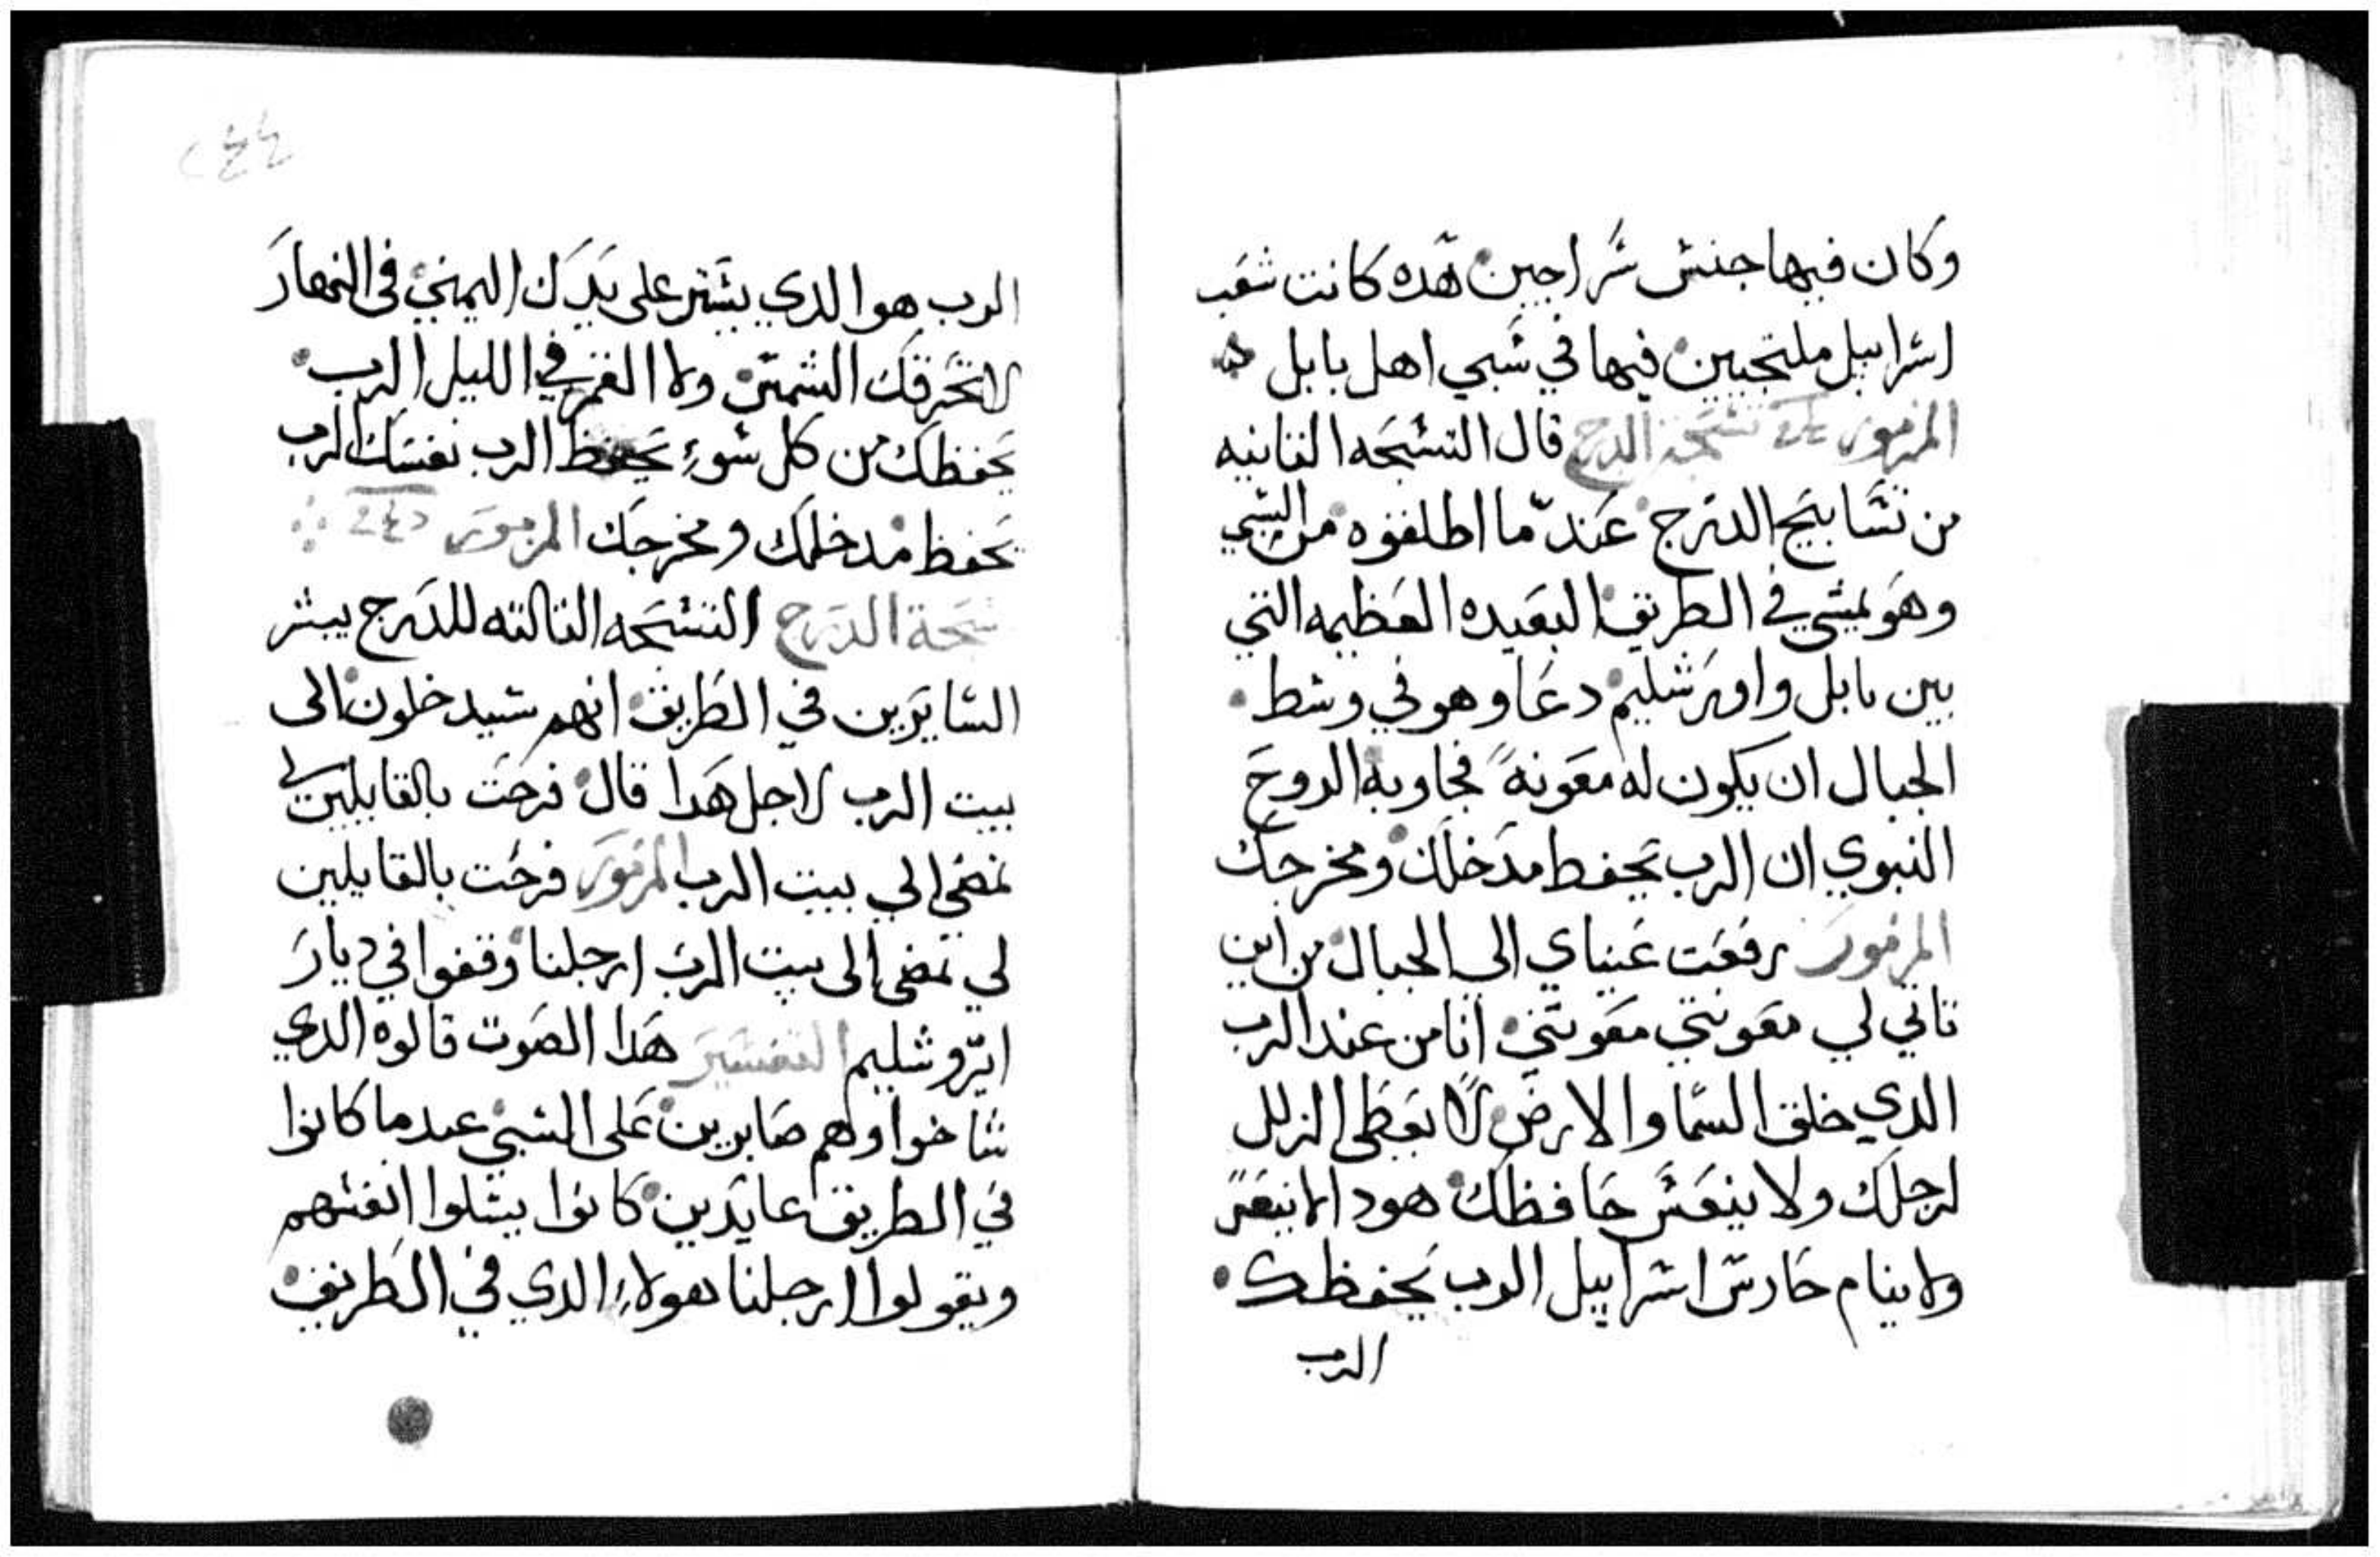 وكان فيها جنس سراجين هده كانت شعب
اسراييل ملتجيين فيها في سبي اهل بابل
المزمور تسبحة الدرج قال التسبحه الثانيه
من تسابيح الدرج عند ما اطلقوه من السبي
وهو يمشي في الطريق البعيده العظيمه التي
بين بابل واورشليم دعا وهو في وسط
الجبال ان يكون له معونه فجاوبه الروح
النبوي ان الرب يحفط مدخلك ومخرجك
المزمور رفعت عيناي الى الجبال من اين
تاتي لي معونتي معونتي انا من عند الرب
الدي خلق السما والارض لا يعطى الزلل
لرجلك ولا ينعس حافظك هودا لا ينعس
ولا ينام حارس اسراييل الرب يحفظك
الرب
٢٤٤
الرب هو الدي يستر على يدك اليمني في النهار
لا تحرقك الشمس ولا القمر في الليل الرب
يحفظك من كل سوء يحفظ الرب نفسك الرب
يحفظ مدخلك ومخرجك المزمور
سبحة الدرج التسبحه التالته للدرج يبشر
السايرين في الطريق انهم سيدخلون الى
بيت الرب لاجل هدا قال فرحت بالقايلين لي
نمضي الي بيت الرب المزمور فرحت بالقايلين
لي نمضى الى بيت الرب ارجلنا وقفوا في ديار
ايروشليم التفسير هدا الصوت قالوه الدي
شاخوا وهم صابرين على السبي عندما كانوا
في الطريق عايدين كانوا يسلوا انفسهم
ويقولوا ارجلنا هولاء الدي في الطريق